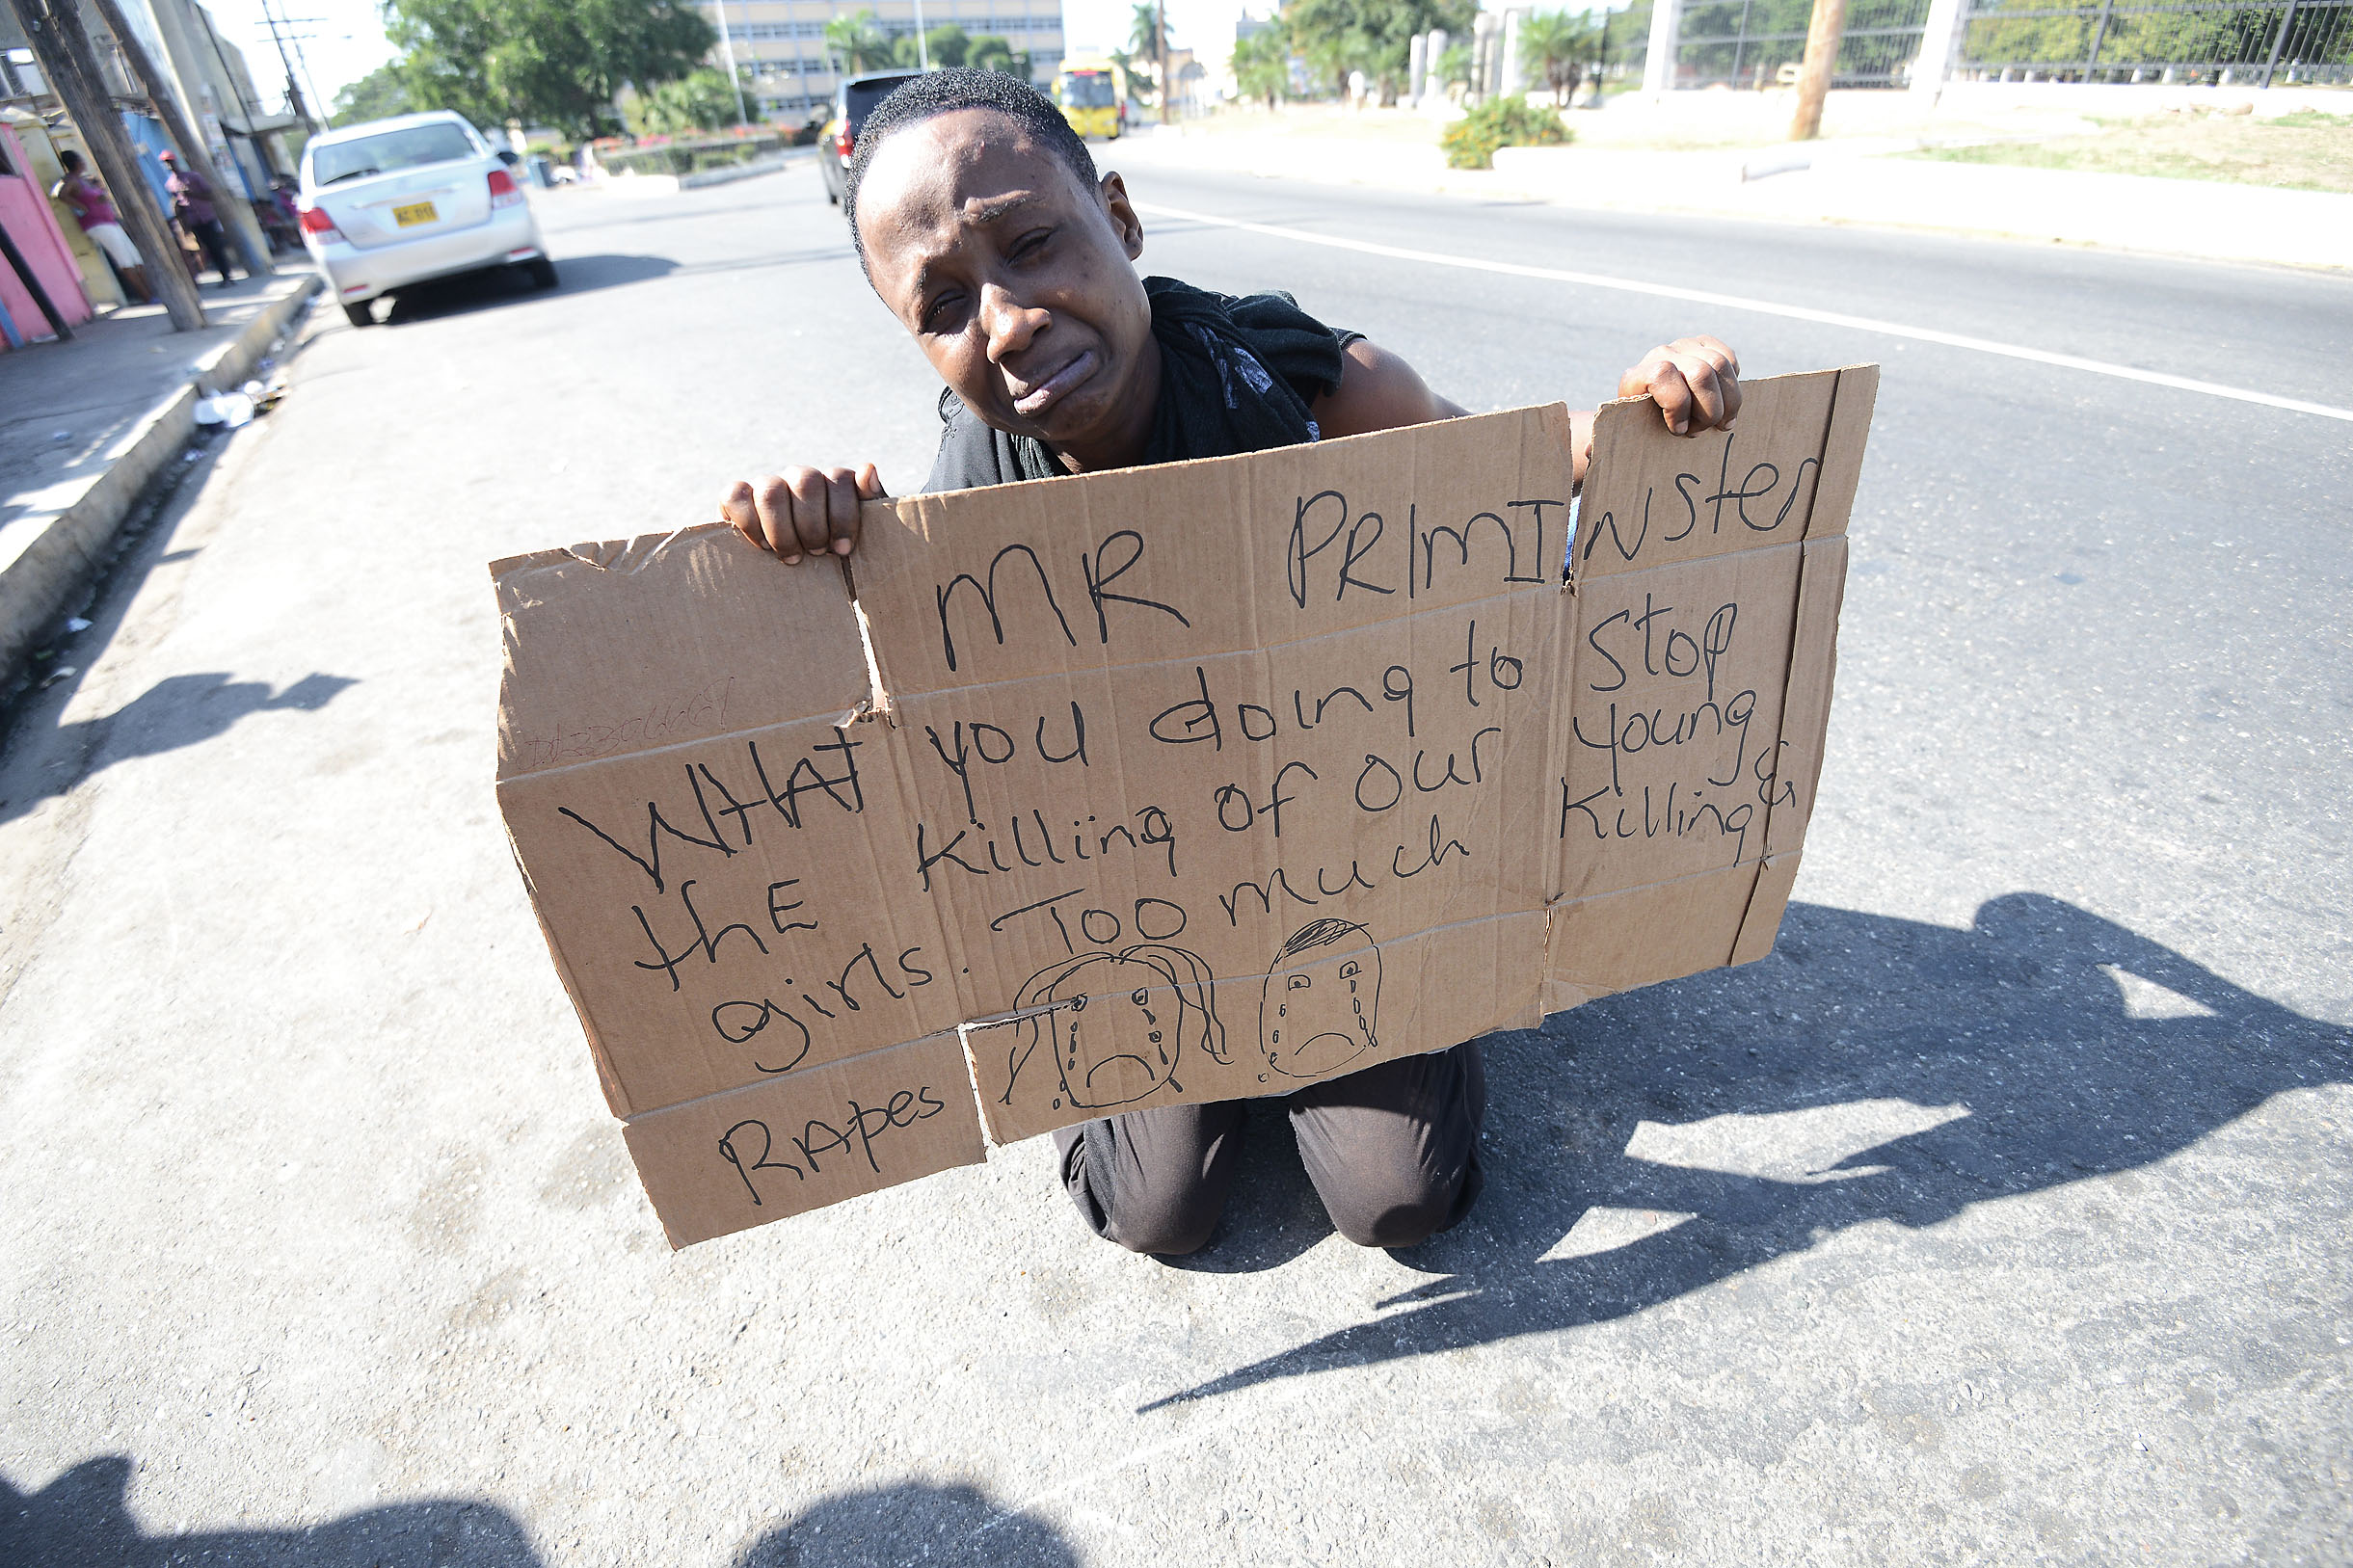 MR PRIMINster
WHAT you doing to stop
thE killing of our young
girls. Too much killing &
RApes